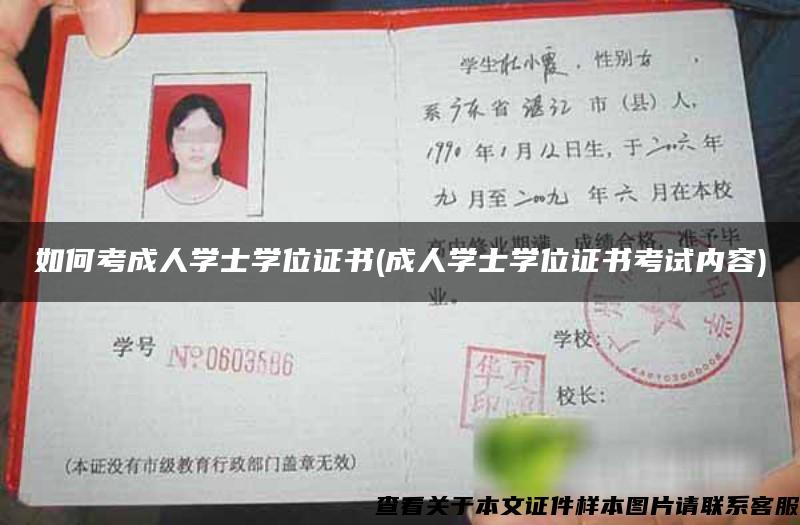 学生杜小霞，性别女，
系广东省湛江市（县）人，
1990年1月12日生，于二〇〇六年
九月至二〇〇九年六月在本校
高中修业期满，成绩合格，准予毕
业。
如何考成人学士学位证书(成人学士学位证书考试内容)
学号 No:0603586
学校：
校长：
(本证没有市级教育行政部门盖章无效)
查看关于本文证件样本图片请联系客服